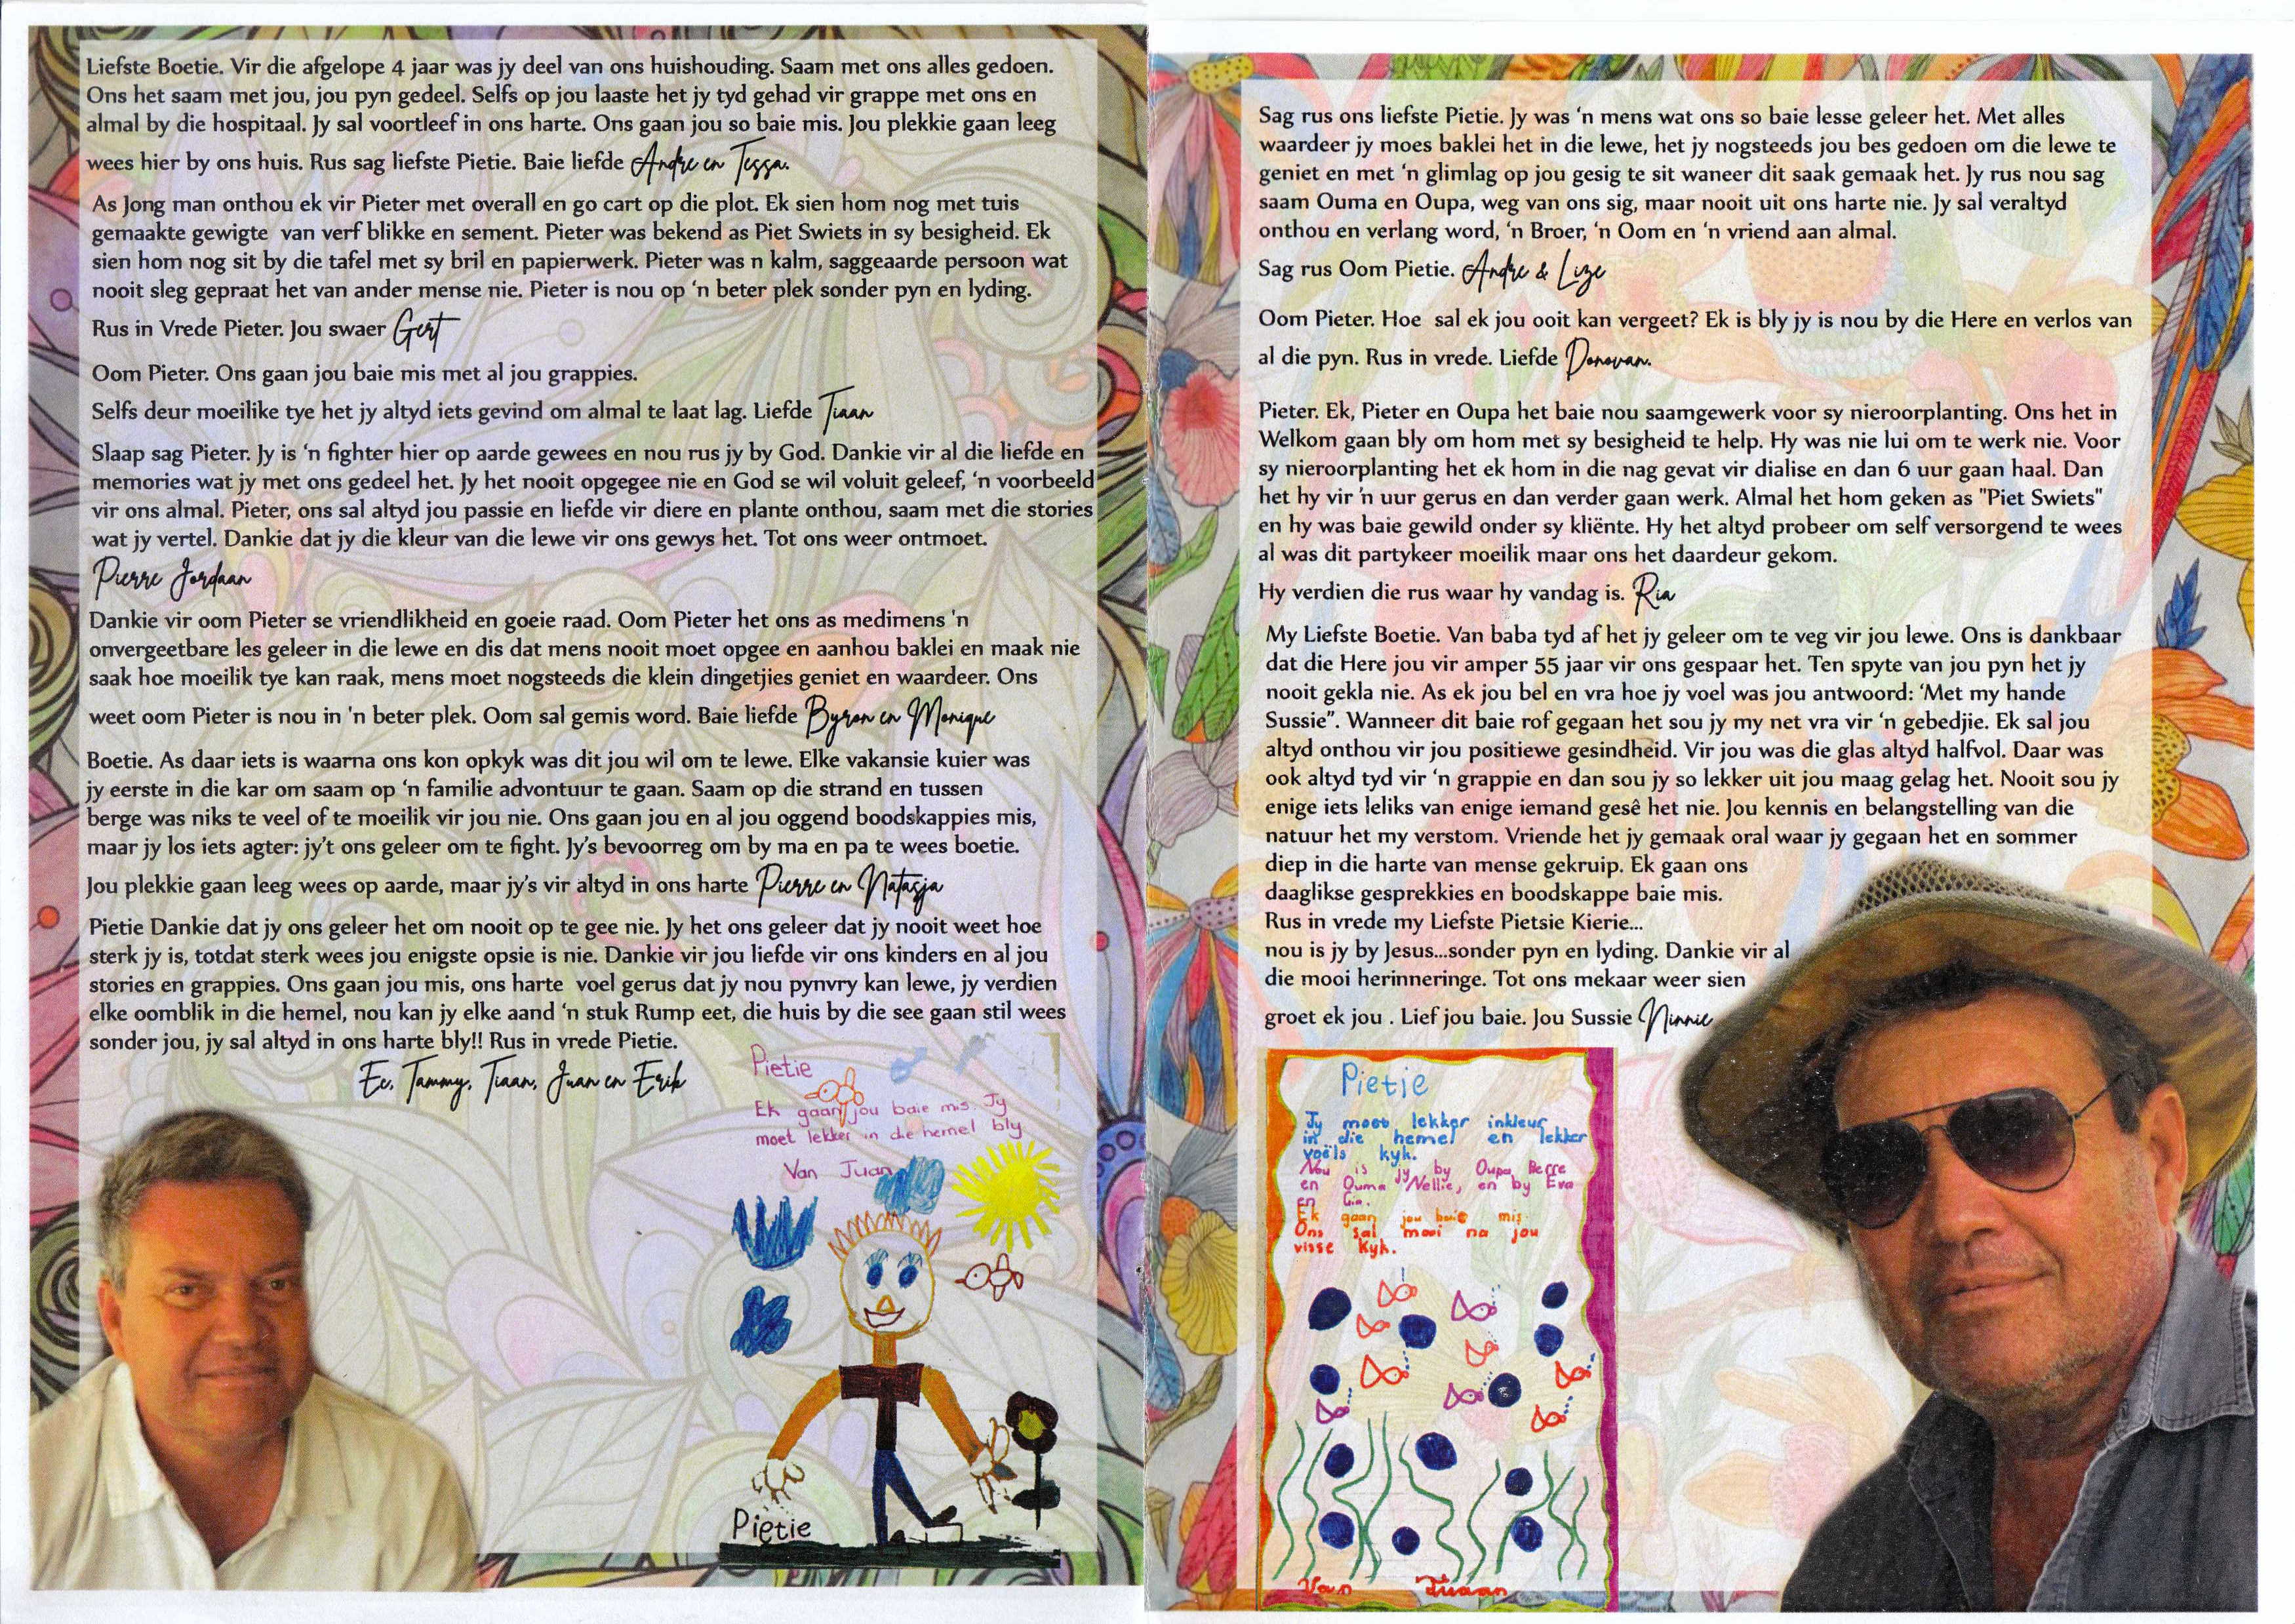 Liefste Boetie. Vir die afgelope 4 jaar was jy deel van ons huishouding. Saam met ons alles gedoen.
Ons het saam met jou, jou pyn gedeel. Selfs op jou laaste het jy tyd gehad vir grappe met ons en
almal by die hospitaal. Jy sal voortleef in ons harte. Ons gaan jou so baie mis. Jou plekkie gaan leeg
wees hier by ons huis. Rus sag liefste Pietie. Baie liefde Andre en Tessa.
As Jong man onthou ek vir Pieter met overall en go cart op die plot. Ek sien hom nog met tuis
gemaakte gewigte van verf blikke en sement. Pieter was bekend as Piet Swiets in sy besigheid. Ek
sien hom nog sit by die tafel met sy bril en papierwerk. Pieter was n kalm, saggeaarde persoon wat
nooit sleg gepraat het van ander mense nie. Pieter is nou op ‘n beter plek sonder pyn en lyding.
Rus in Vrede Pieter. Jou swaer Gert
Oom Pieter. Ons gaan jou baie mis met al jou grappies.
Selfs deur moeilike tye het jy altyd iets gevind om almal te laat lag. Liefde Tiaan
Slaap sag Pieter. Jy is ‘n fighter hier op aarde gewees en nou rus jy by God. Dankie vir al die liefde en
memories wat jy met ons gedeel het. Jy het nooit opgegee nie en God se wil voluit geleef, ‘n voorbeeld
vir ons almal. Pieter, ons sal altyd jou passie en liefde vir diere en plante onthou, saam met die stories
wat jy vertel. Dankie dat jy die kleur van die lewe vir ons gewys het. Tot ons weer ontmoet.
Pierre Jordaan
Dankie vir oom Pieter se vriendlikheid en goeie raad. Oom Pieter het ons as medimens 'n
onvergeetbare les geleer in die lewe en dis dat mens nooit moet opgee en aanhou baklei en maak nie
saak hoe moeilik tye kan raak, mens moet nogsteeds die klein dingetjies geniet en waardeer. Ons
weet oom Pieter is nou in 'n beter plek. Oom sal gemis word. Baie liefde Byron en Monique
Boetie. As daar iets is waarna ons kon opkyk was dit jou wil om te lewe. Elke vakansie kuier was
jy eerste in die kar om saam op ‘n familie advontuur te gaan. Saam op die strand en tussen
berge was niks te veel of te moeilik vir jou nie. Ons gaan jou en al jou oggend boodskappies mis,
maar jy los iets agter: jy’t ons geleer om te fight. Jy’s bevoorreg om by ma en pa te wees boetie.
Jou plekkie gaan leeg wees op aarde, maar jy’s vir altyd in ons harte Pierre en Natasja
Pietie Dankie dat jy ons geleer het om nooit op te gee nie. Jy het ons geleer dat jy nooit weet hoe
sterk jy is, totdat sterk wees jou enigste opsie is nie. Dankie vir jou liefde vir ons kinders en al jou
stories en grappies. Ons gaan jou mis, ons harte voel gerus dat jy nou pynvry kan lewe, jy verdien
elke oomblik in die hemel, nou kan jy elke aand ‘n stuk Rump eet, die huis by die see gaan stil wees
sonder jou, jy sal altyd in ons harte bly!! Rus in vrede Pietie.
Ec, Tammy, Tiaan, Juan en Erik
Pietie
Ek gaan jou baie mis. Jy
moet lekker in die hemel bly
Van Juan
Pietie
Sag rus ons liefste Pietie. Jy was ‘n mens wat ons so baie lesse geleer het. Met alles
waardeer jy moes baklei het in die lewe, het jy nogsteeds jou bes gedoen om die lewe te
geniet en met ‘n glimlag op jou gesig te sit waneer dit saak gemaak het. Jy rus nou sag
saam Ouma en Oupa, weg van ons sig, maar nooit uit ons harte nie. Jy sal veraltyd
onthou en verlang word, ‘n Broer, ‘n Oom en ‘n vriend aan almal.
Sag rus Oom Pietie. Andre & Lize
Oom Pieter. Hoe sal ek jou ooit kan vergeet? Ek is bly jy is nou by die Here en verlos van
al die pyn. Rus in vrede. Liefde Donovan.
Pieter. Ek, Pieter en Oupa het baie nou saamgewerk voor sy nieroorplanting. Ons het in
Welkom gaan bly om hom met sy besigheid te help. Hy was nie lui om te werk nie. Voor
sy nieroorplanting het ek hom in die nag gevat vir dialise en dan 6 uur gaan haal. Dan
het hy vir 'n uur gerus en dan verder gaan werk. Almal het hom geken as "Piet Swiets"
en hy was baie gewild onder sy kliënte. Hy het altyd probeer om self versorgend te wees
al was dit partykeer moeilik maar ons het daardeur gekom.
Hy verdien die rus waar hy vandag is. Ria
My Liefste Boetie. Van baba tyd af het jy geleer om te veg vir jou lewe. Ons is dankbaar
dat die Here jou vir amper 55 jaar vir ons gespaar het. Ten spyte van jou pyn het jy
nooit gekla nie. As ek jou bel en vra hoe jy voel was jou antwoord: ‘Met my hande
Sussie”. Wanneer dit baie rof gegaan het sou jy my net vra vir ‘n gebedjie. Ek sal jou
altyd onthou vir jou positiewe gesindheid. Vir jou was die glas altyd halfvol. Daar was
ook altyd tyd vir ‘n grappie en dan sou jy so lekker uit jou maag gelag het. Nooit sou jy
enige iets leliks van enige iemand gesê het nie. Jou kennis en belangstelling van die
natuur het my verstom. Vriende het jy gemaak oral waar jy gegaan het en sommer
diep in die harte van mense gekruip. Ek gaan ons
daaglikse gesprekkies en boodskappe baie mis.
Rus in vrede my Liefste Pietsie Kierie...
nou is jy by Jesus...sonder pyn en lyding. Dankie vir al
die mooi herinneringe. Tot ons mekaar weer sien
groet ek jou . Lief jou baie. Jou Sussie Ninnie
Pietie
Jy moet lekker inkleur
in die hemel en lekker
voëls kyk.
Nou is jy by Oupa Pierre
en Ouma Nellie, en by Eva
en Gia.
Ek gaan jou baie mis.
Ons sal mooi na jou
visse kyk.
Van Tiaan